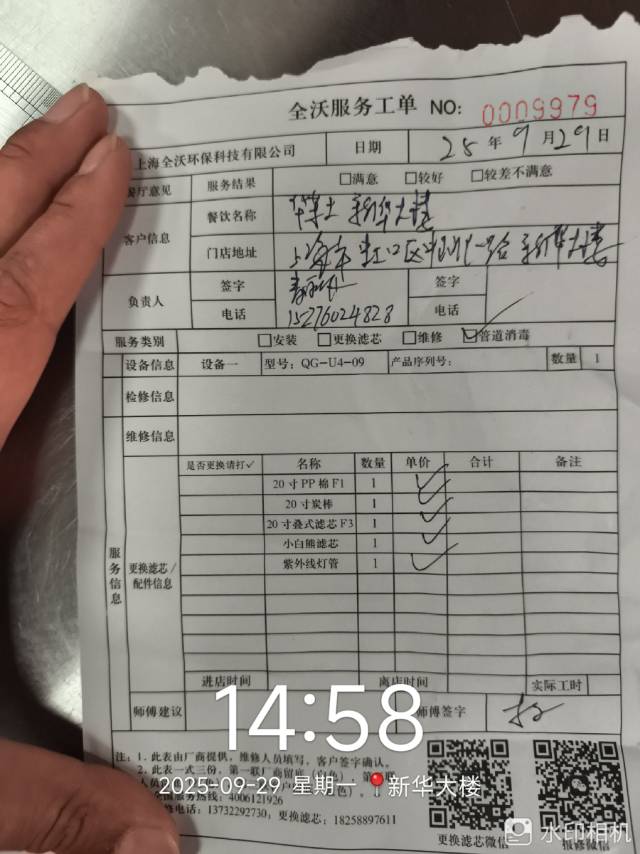 全沃服务工单 NO: 0009979
上海全沃环保科技有限公司 日期 25 年 9 月 29 日
餐厅意见 服务结果 □满意 □较好 □较差不满意
客户信息 餐饮名称 新华大楼
门店地址 上海市虹口区 新华大楼
负责人 签字 签字
电话 15276024828 电话
服务类别 □安装 □更换滤芯 □维修 ☑管道消毒
设备信息 设备一 型号: QG-U4-09 产品序列号: 数量 1
检修信息
维修信息
服务信息 更换滤芯/配件信息
是否更换请打✓ 名称 数量 单价 合计 备注
20寸PP棉F1 1 ✓
20寸炭棒 1 ✓
20寸叠式滤芯F3 1 ✓
小白熊滤芯 1 ✓
紫外线灯管 1 ✓
进店时间 离店时间 实际工时
师傅建议 师傅签字
14:58
注: 1. 此表由厂商提供, 维修人员填写, 客户签字确认。
2. 此表一式三份, 第一联厂商留底
2025-09-29 星期一 新华大楼
服务热线: 4006121926
电话: 13732292730, 更换滤芯: 18258897611
更换滤芯微信 报修微信
水印相机